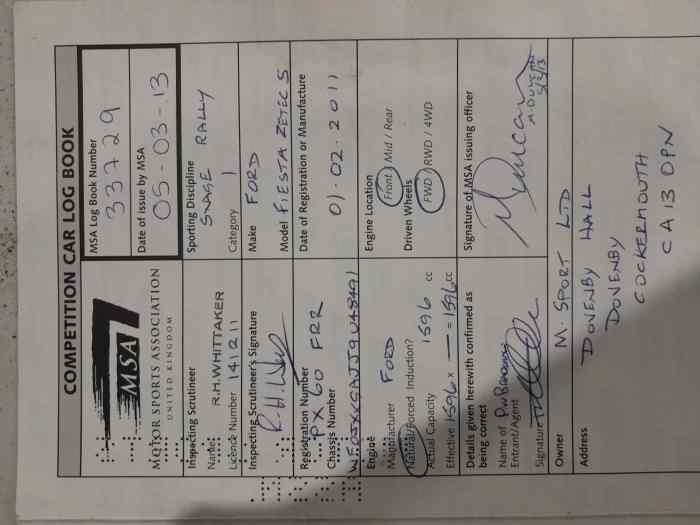 COMPETITION CAR LOG BOOK
MSA
MOTOR SPORTS ASSOCIATION
UNITED KINGDOM
MSA Log Book Number
33729
Date of issue by MSA
05-03-13
Inspecting Scrutineer
Name R.H.WHITTAKER
Licence Number 141211
Sporting Discipline
STAGE RALLY
Category 1
Inspecting Scrutineer's Signature
Make FORD
Model FIESTA ZETEC S
Registration Number
PX60 FRR
Chassis Number
Date of Registration or Manufacture
01.02.2011
Engine
Manufacturer FORD
Natural/Forced Induction?
Actual Capacity 1596 cc
Effective 1596 x — = 1596 cc
Engine Location
Front / Mid / Rear
Driven Wheels
FWD / RWD / 4WD
Details given herewith confirmed as
being correct
Name of
Entrant/Agent
Signature
Signature of MSA issuing officer
Owner M. SPORT LTD
Address DOVENBY HALL
DOVENBY
COCKERMOUTH
CA13 0PN